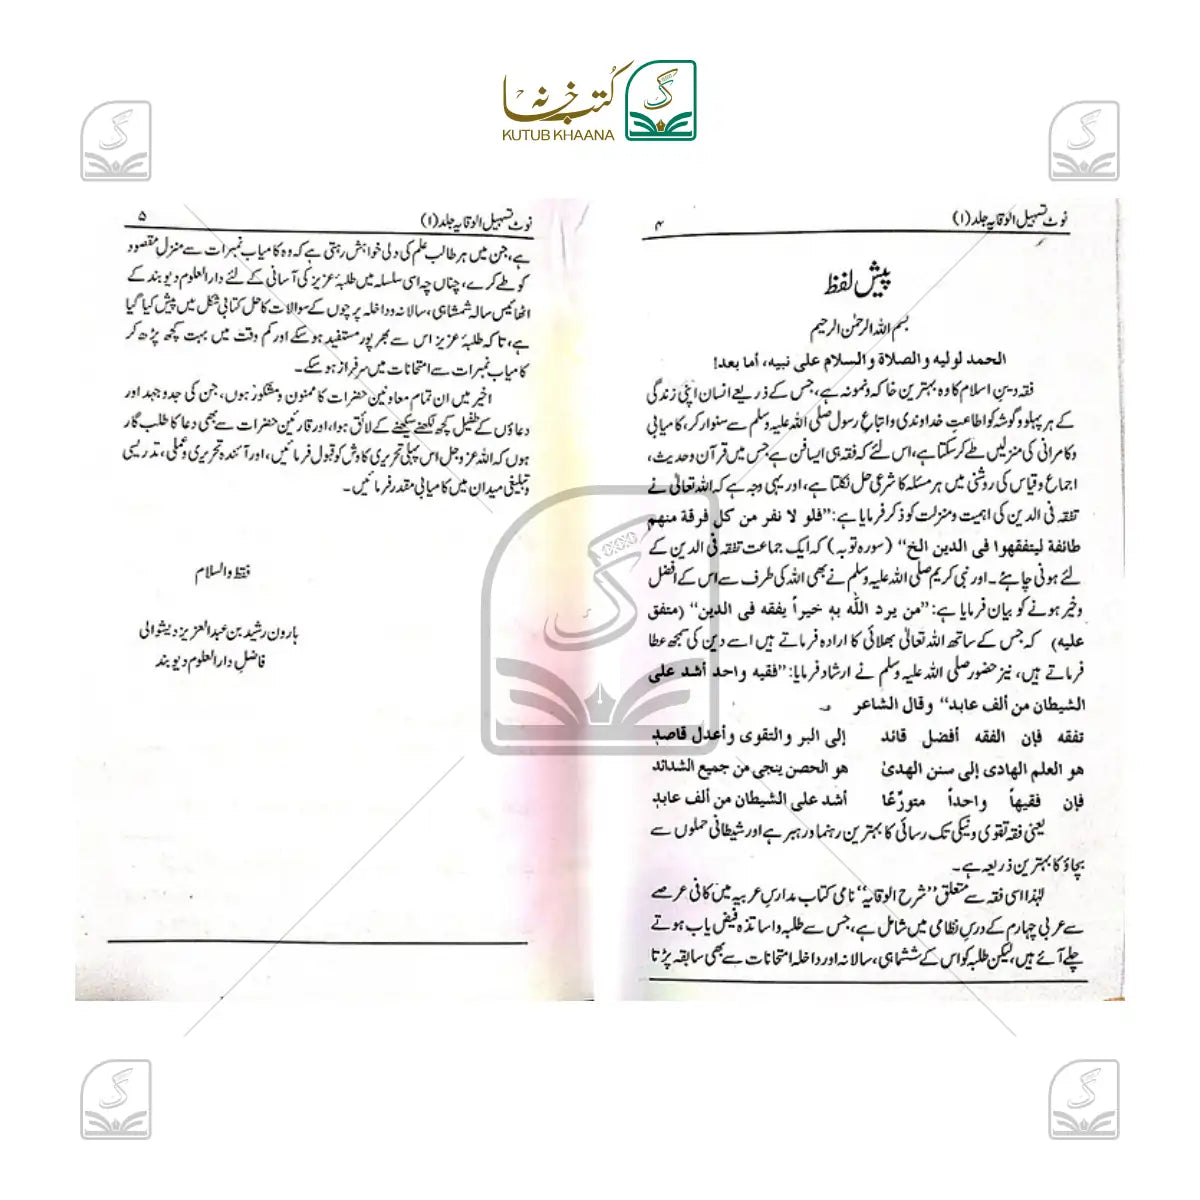 کتب خانہ
KUTUB KHAANA
نوٹ تسہیل الوقایہ جلد (۱)
۴
پیش لفظ
بسم اللہ الرحمٰن الرحیم
الحمد لولیه والصلاة والسلام علی نبیه، أما بعد!
فقہ دینِ اسلام کا وہ بہترین خاکہ و نمونہ ہے، جس کے ذریعے انسان اپنی زندگی
کے ہر پہلو و گوشہ کو اطاعتِ خداوندی و اتباعِ رسول صلی اللہ علیہ وسلم سے سنوار کر، کامیابی
و کامرانی کی منزلیں طے کر سکتا ہے، اس لئے کہ فقہ ہی ایسا فن ہے جس میں قرآن و حدیث،
اجماع و قیاس کی روشنی میں ہر مسئلہ کا شرعی حل نکلتا ہے، اور یہی وجہ ہے کہ اللہ تعالیٰ نے
تفقہ فی الدین کی اہمیت و منزلت کو ذکر فرمایا ہے: ”فلو لا نفر من کل فرقة منهم
طائفة لیتفقهوا فی الدین الخ“ (سورہ توبہ) کہ ایک جماعت تفقہ فی الدین کے
لئے ہونی چاہئے۔ اور نبی کریم صلی اللہ علیہ وسلم نے بھی اللہ کی طرف سے اس کے افضل
و خیر ہونے کو بیان فرمایا ہے: ”من یرد اللّٰه به خیراً یفقه فی الدین“ (متفق
علیه) کہ جس کے ساتھ اللہ تعالیٰ بھلائی کا ارادہ فرماتے ہیں اسے دین کی سمجھ عطا
فرماتے ہیں، نیز حضور صلی اللہ علیہ وسلم نے ارشاد فرمایا: ”فقیه واحد أشد علی
الشیطان من ألف عابد“ وقال الشاعر
تفقه فإن الفقه أفضل قائد إلی البر والتقوی وأعدل قاصد
هو العلم الهادی إلی سنن الهدیٰ هو الحصن ینجی من جمیع الشدائد
فإن فقیهاً واحداً متورِّعًا أشد علی الشیطان من ألف عابد
یعنی فقہ تقویٰ و نیکی تک رسائی کا بہترین رہنما و رہبر ہے اور شیطانی حملوں سے
بچاؤ کا بہترین ذریعہ ہے۔
لہٰذا اسی فقہ سے متعلق ”شرح الوقایہ“ نامی کتاب مدارسِ عربیہ میں کافی عرصے
سے عربی چہارم کے درسِ نظامی میں شامل ہے، جس سے طلبہ و اساتذہ فیض یاب ہوتے
چلے آئے ہیں، لیکن طلبہ کو اس کے ششماہی، سالانہ اور داخلہ امتحانات سے بھی سابقہ پڑتا
نوٹ تسہیل الوقایہ جلد (۱)
۵
ہے، جن میں ہر طالب علم کی دلی خواہش رہتی ہے کہ وہ کامیاب نمبرات سے منزلِ مقصود
کو طے کرے، چناں چہ اسی سلسلہ میں طلبۂ عزیز کی آسانی کے لئے دارالعلوم دیوبند کے
اٹھائیس سالہ ششماہی، سالانہ و داخلہ پرچوں کے سوالات کا حل کتابی شکل میں پیش کیا گیا
ہے، تاکہ طلبۂ عزیز اس سے بھرپور مستفید ہو سکے اور کم وقت میں بہت کچھ پڑھ کر
کامیاب نمبرات سے امتحانات میں سرفراز ہو سکے۔
اخیر میں ان تمام معاونین حضرات کا ممنون و مشکور ہوں، جن کی جدوجہد اور
دعاؤں کے طفیل کچھ لکھنے سیکھنے کے لائق ہوا، اور قارئین حضرات سے بھی دعا کا طلب گار
ہوں کہ اللہ عزوجل اس پہلی تحریری کاوش کو قبول فرمائیں، اور آئندہ تحریری و عملی، تدریسی
و تبلیغی میدان میں کامیابی مقدر فرمائیں۔
فقط والسلام
ہارون رشید بن عبدالعزیز دیشوالی
فاضل دارالعلوم دیوبند